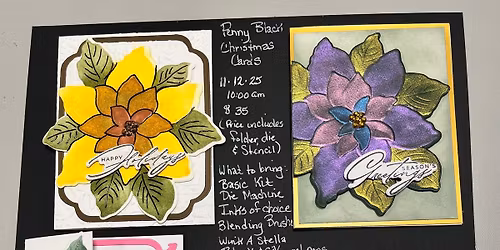 Penny Black
Christmas
Cards
11·12·25
10:00 am
$35
(Price includes
folder, die
& Stencil)
What to bring:
Basic Kit
Die Machine
Inks of choice
Blending Brushes
Wink A Stella
HAPPY
Holidays
SEASON'S
Greetings